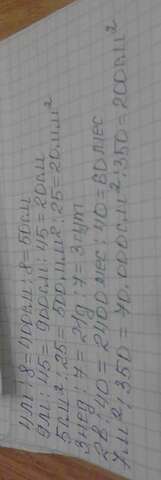 4м:8=400см:8=50см
9м:45=900см:45=20см
5см²:25=500мм²:25=20мм²
3нед:7=21д:7=3сут
2в:40=2400мес:40=60мес
7м²:350=70.000см²:350=200см²